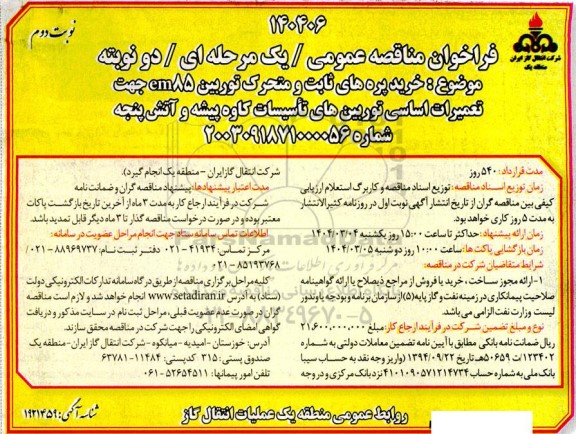 نوبت دوم
۱۴۰۴۰۶
شرکت انتقال گاز ایران
منطقه یک
فراخوان مناقصه عمومی / یک مرحله ای / دو نوبته
موضوع : خرید پره های ثابت و متحرک توربین cm۸۵ جهت
تعمیرات اساسی توربین های تأسیسات کاوه پیشه و آتش پنجه
شماره ۲۰۰۳۰۹۱۸۷۱۰۰۰۰۵۶
مدت قرارداد: ۵۴۰ روز
زمان توزیع اسناد مناقصه: توزیع اسناد مناقصه و کاربرگ استعلام ارزیابی
کیفی بین مناقصه گران از تاریخ انتشار آگهی نوبت اول در روزنامه کثیرالانتشار
به مدت ۵ روز کاری خواهد بود.
زمان ارائه پیشنهاد: حداکثر تا ساعت ۱۵:۰۰ روز یکشنبه ۱۴۰۴/۰۳/۰۴
زمان بازگشایی پاکت ها: ساعت ۱۰:۰۰ روز دو شنبه ۱۴۰۴/۰۳/۰۵
شرایط متقاضیان شرکت در مناقصه:
۱-ارائه مجوز ساخت، خرید یا فروش از مراجع ذیصلاح یا ارائه گواهینامه
صلاحیت پیمانکاری در زمینه نفت و گاز پایه (۵) از سازمان برنامه و بودجه یا وندور
لیست وزارت نفت الزامی می باشد.
نوع و مبلغ تضمین شرکت در فرآیند ارجاع کار: مبلغ ۲۱.۶۰۰.۰۰۰.۰۰۰
ریال ضمانت نامه بانکی مطابق با آیین نامه تضمین معاملات دولتی به شماره
۱۲۳۴۰۲/ت۵۰۶۵۹هـ تاریخ ۱۳۹۴/۰۹/۲۲ (واریز وجه نقد به حساب سیبا
بانک ملی به شماره حساب ۴۱۰۱۰۹۰۵۷۱۲۱۴۷۳۴ نزد بانک مرکزی و در وجه
شرکت انتقال گاز ایران -منطقه یک انجام گیرد).
مدت اعتبار پیشنهادها: پیشنهاد مناقصه گران و ضمانت نامه
شرکت در فرآیند ارجاع کار به مدت ۳ ماه از آخرین تاریخ بازگشت پاکات
معتبر بوده و در صورت درخواست مناقصه گذار تا ۳ ماه دیگر قابل تمدید باشد.
اطلاعات تماس سامانه ستاد جهت انجام مراحل عضویت در سامانه:
مرکز تماس: ۴۱۹۳۴-۰۲۱ دفتر ثبت نام: ۸۸۹۶۹۷۳۷-۰۲۱ /
۸۵۱۹۳۷۶۸-۰۲۱
کلیه مراحل برگزاری مناقصه از طریق درگاه سامانه تدارکات الکترونیکی دولت
(ستاد) به آدرس www.setadiran.ir انجام خواهد شد و لازم است مناقصه
گران در صورت عدم عضویت قبلی، مراحل ثبت نام در سایت مذکور و دریافت
گواهی امضای الکترونیکی را جهت شرکت در مناقصه محقق سازند.
آدرس: خوزستان -امیدیه -میانکوه -شرکت انتقال گاز ایران -منطقه یک
صندوق پستی: ۳۱۵ کدپستی: ۱۱۴۸۴-۶۳۷۸۱
تلفن امور پیمانها: ۵۲۶۵۴۵۱۱-۰۶۱
روابط عمومی منطقه یک عملیات انتقال گاز
شناسه آگهی: ۱۹۲۱۴۵۹